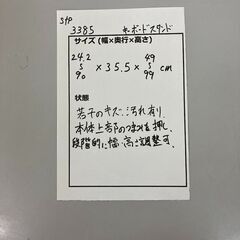 stp
3385 キーボードスタンド
サイズ(幅×奥行×高さ)
24.2 49
S × 35.5 × S cm
90 99
状態
若干のキズ、汚れ有り。
本体上部のつまみを押し、
段階的に幅・高さ調整可。